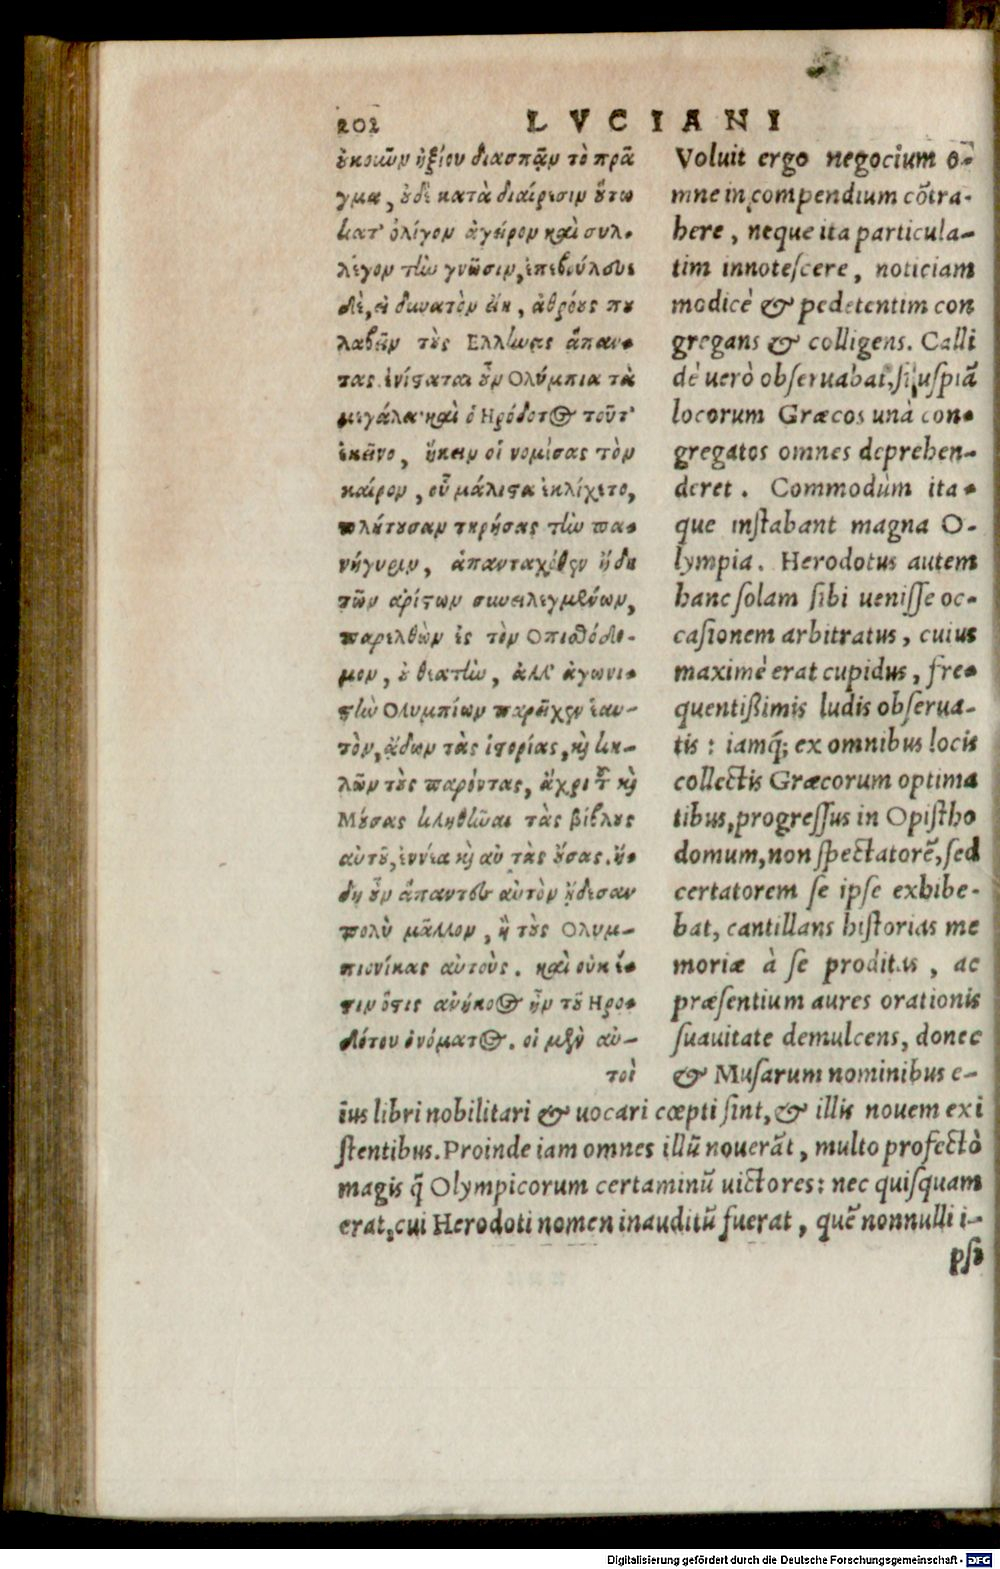 202 LVCIANI
ὐκοιῶν ἠξίου διασπᾷν τὸ πρᾶ
γμα, ὐδὲ κατὰ διαίρεσιν ὕτω
κατ' ὀλίγον ἀγείρων καὶ συλ-
λέγων τὴν γνῶσιν, ἐπεβούλευε
δὲ, εἰ δυνατὸν εἴη, ἀθρόυς πυ
λαβεῖν τὺς Ελλίωας ἅπαν-
τας. ἐνίσταται ὖν Ολύμπια τὰ
μεγάλα· καὶ ὁ Ηρόδοτος τοῦτ'
ἐκεῖνο, ἥκειν οἱ νομίσας τὸν
καίρον, οὗ μάλιστα ἐκλίχετο,
πλήτυσαν τηρήσας τὴν πα-
νήγυριν, ἁπανταχόθεν ἤδη
τῶν ἀρίστων συνειλεγμένων,
παρελθὼν ἐς τὸν Οπισθόδο-
μον, ὐ θεατὴν, ἀλλ' ἀγωνι-
στὴν Ολυμπίων παρεῖχεν ἑαυ-
τὸν, ᾄδων τὰς ἱστορίας, καὶ κη-
λῶν τὺς παρόντας, ἄχρι τῦ καὶ
Μύσας κληθῆναι τὰς βίβλυς
αὐτῦ, ἐννέα καὶ αὐτὰς ὔσας. ἤ-
δη ὖν ἅπαντες αὐτὸν ᾔδεσαν
πολὺ μᾶλλον, ἢ τὺς Ολυμ-
πιονίκας αὐτοὺς. καὶ οὐκ ἔ-
στιν ὅστις ἀνήκοος ἦν τῦ Ηρο-
δότου ὀνόματος. οἱ μὲν αὐ-
τοὶ
Voluit ergo negocium o-
mne in compendium cõtra-
here, neque ita particula-
tim innotescere, noticiam
modicè & pedetentim con
gregans & colligens. Calli
dè uerò obseruabat, si uspiã
locorum Græcos unà con-
gregatos omnes deprehen-
deret. Commodùm ita-
que instabant magna O-
lympia. Herodotus autem
hanc solam sibi uenisse oc-
casionem arbitratus, cuius
maximè erat cupidus, fre-
quentißimis ludis obserua-
tis: iamq́; ex omnibus locis
collectis Græcorum optima
tibus, progressus in Opistho
domum, non spectatorẽ, sed
certatorem se ipse exhibe-
bat, cantillans historias me
moriæ à se proditas, ac
præsentium aures orationis
suauitate demulcens, donec
& Musarum nominibus e-
ius libri nobilitari & uocari cœpti sint, & illis nouem exi
stentibus. Proinde iam omnes illũ nouerãt, multo profectò
magis q̃ Olympicorum certaminũ uictores: nec quisquam
erat, cui Herodoti nomen inauditũ fuerat, quẽ nonnulli i-
psi
Digitalisierung gefördert durch die Deutsche Forschungsgemeinschaft - DFG